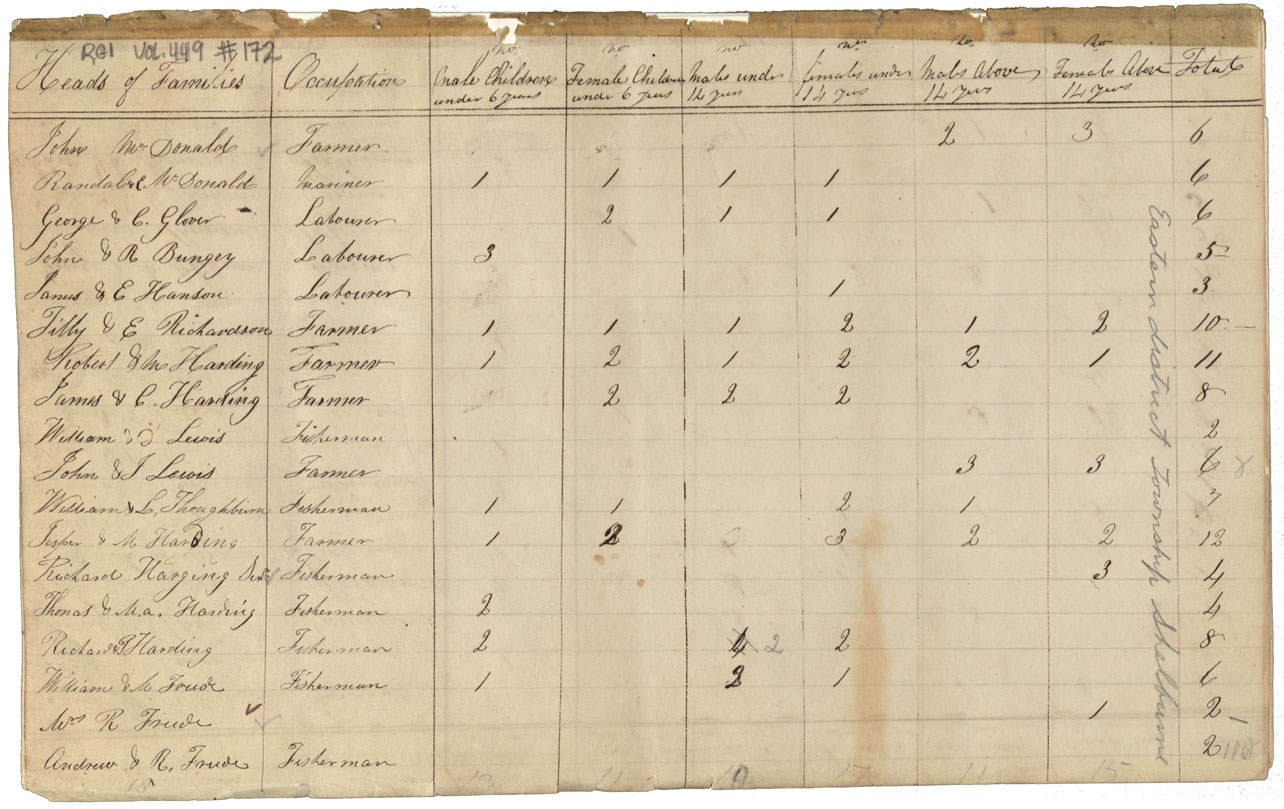 RG1 Vol. 449 #172
no no no no no no
Heads of Families Occupation Male Children under 6 years Female Children under 6 years Males under 14 years females under 14 years Males Above 14 years Females Above 14 years Total
John McDonald Farmer 2 3 6
Randal & C McDonald Mariner 1 1 1 1 6
George & C. Glover Labourer 2 1 1 6
John & R Bungey Labourer 3 5
James & E Hanson Labourer 1 3
Tilly & E Richardson Farmer 1 1 1 2 1 2 10
Robert & M Harding Farmer 1 2 1 2 2 1 11
James & C. Harding Farmer 2 2 2 8
William Lewis Fisherman 2
John & J Lewis Farmer 3 3 6 8
William & L, Thoughburn Fisherman 1 1 2 1 7
Jesper & M Harding Farmer 1 2 3 2 2 12
Richard Harging Senr Fisherman 3 4
Thomas & M.a. Harding Fisherman 2 4
Richard Harding Fisherman 2 4 2 2 8
William & M. Frude Fisherman 1 2 1 6
Mrs R Frude 1 2
Andrew & R. Frude Fisherman 2
13 11 9 17 11 15
Eastern district Township Shelburne